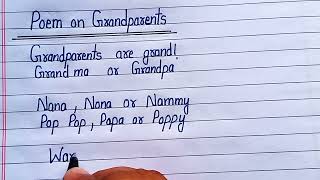 Poem on Grandparents
Grandparents are grand!
Grand ma or Grandpa
Nana, Nona or Nammy
Pop Pop, Papa or Poppy
War